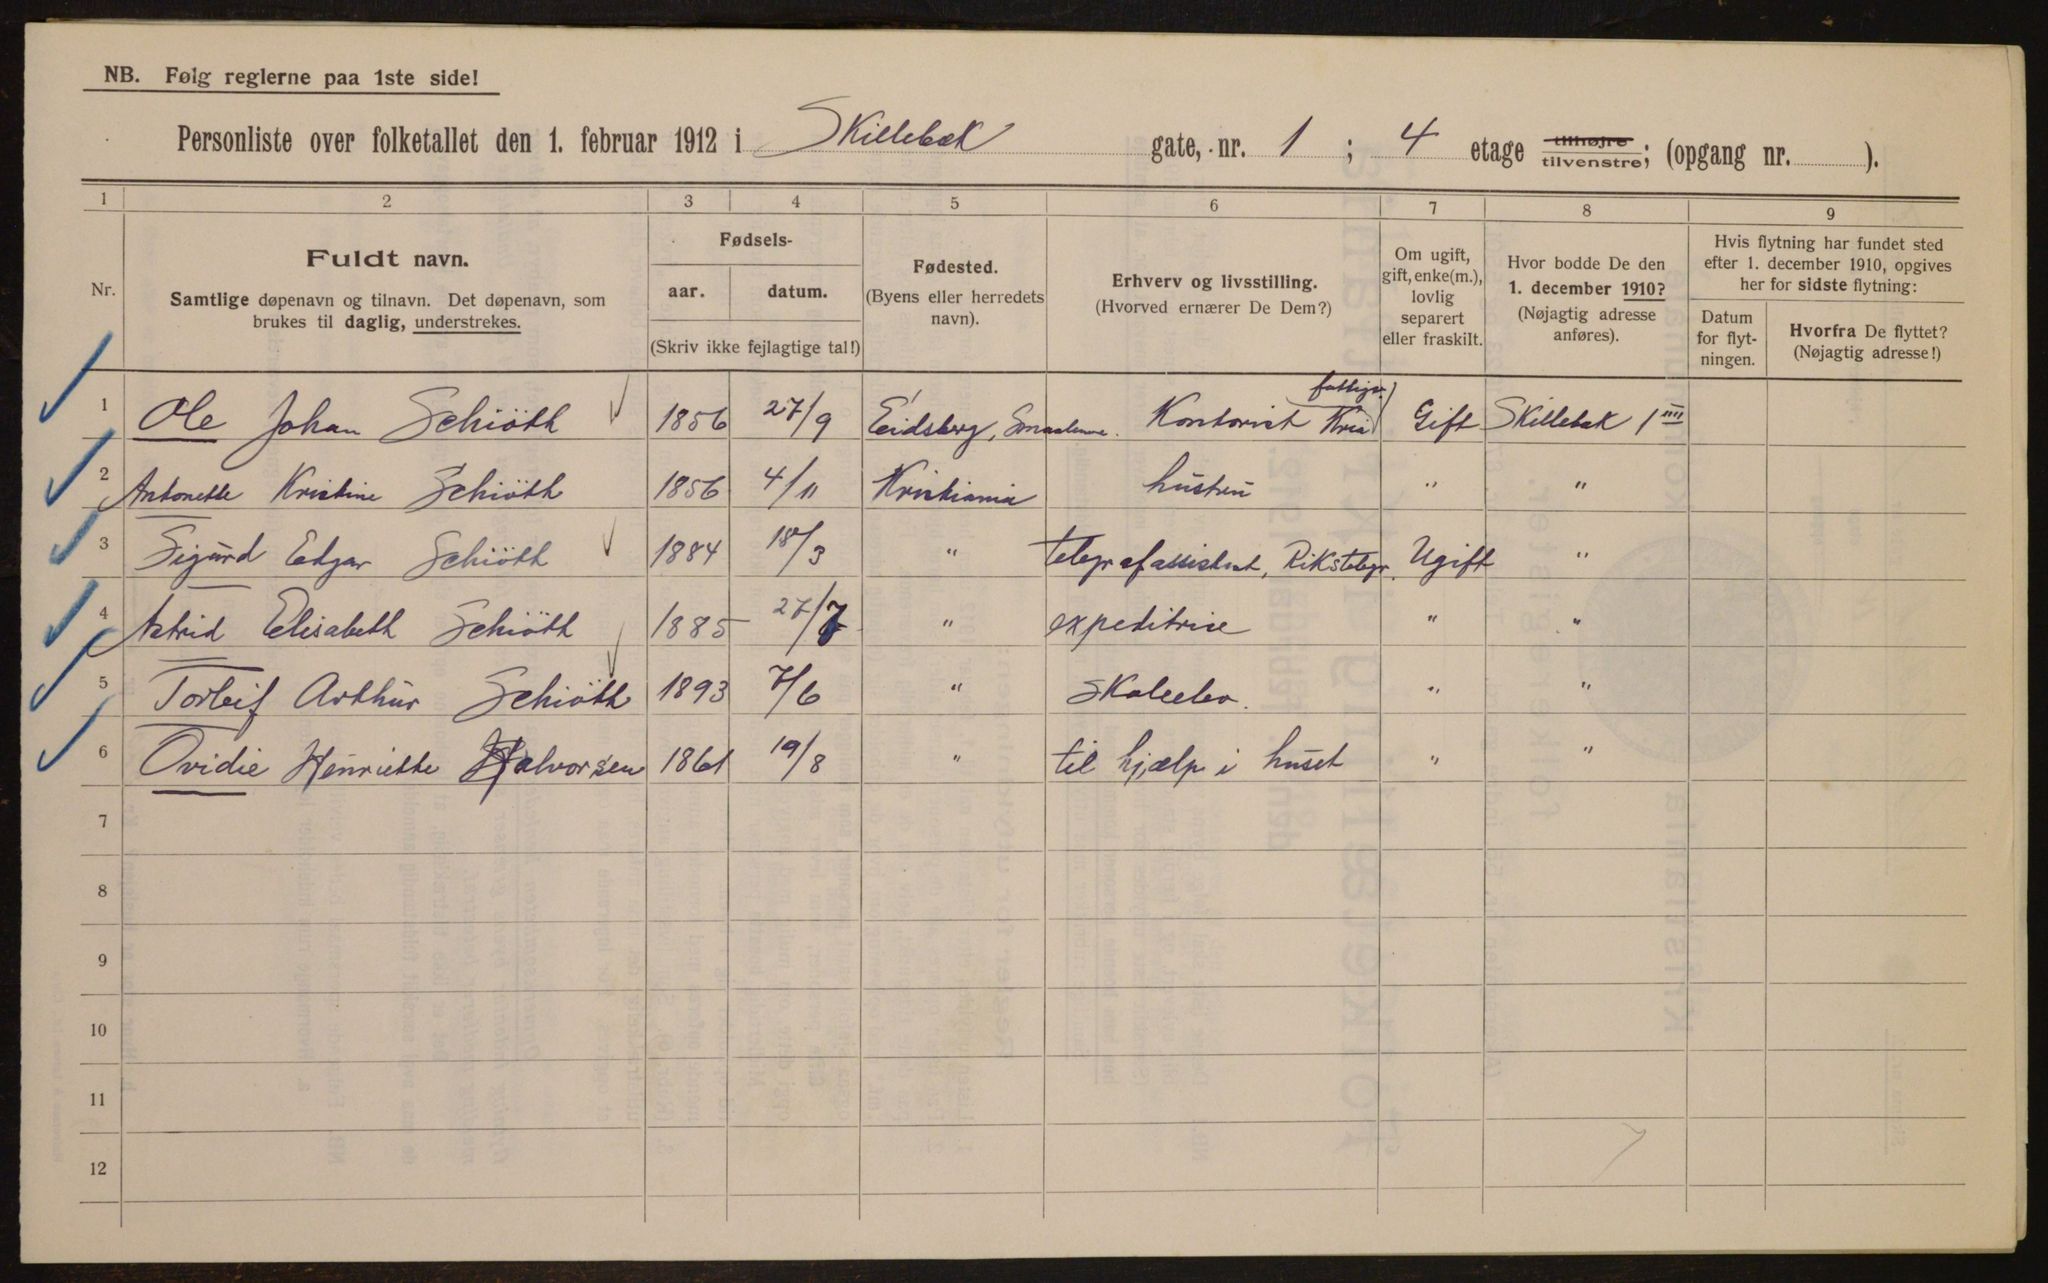 NB. Følg reglerne paa 1ste side!
Personliste over folketallet den 1. februar 1912 i Skillebæk gate, nr. 1 ; 4 etage tilhøjre tilvenstre; (opgang nr. ).
1 2 3 4 5 6 7 8 9
Nr.
Fuldt navn.
Samtlige døpenavn og tilnavn. Det døpenavn, som
brukes til daglig, understrekes.
Fødsels-
aar. datum.
(Skriv ikke fejlagtige tal!)
Fødested.
(Byens eller herredets
navn).
Erhverv og livsstilling.
(Hvorved ernærer De Dem?)
Om ugift,
gift, enke(m.),
lovlig
separert
eller fraskilt.
Hvor bodde De den
1. december 1910?
(Nøjagtig adresse
anføres).
Hvis flytning har fundet sted
efter 1. december 1910, opgives
her for sidste flytning:
Datum
for flyt-
ningen.
Hvorfra De flyttet?
(Nøjagtig adresse!)
1 Ole Johan Schiöth 1856 27/9 Eidsberg, Smaalenne. Kontorist fattigv. Kria Gift Skillebæk 1 IIII
2 Antonette Kristine Schiöth 1856 4/11 Kristiania hustru " "
3 Sigurd Edgar Schiöth 1884 18/3 " telegrafassistent, Rikstelegr. Ugift "
4 Astrid Elisabeth Schiöth 1885 27/7 " expeditrise " "
5 Torleif Arthur Schiöth 1893 7/6 " Skoleelev. " "
6 Ovidie Henriette Halvorsen 1861 19/8 " til hjælp i huset " "
7
8
9
10
11
12